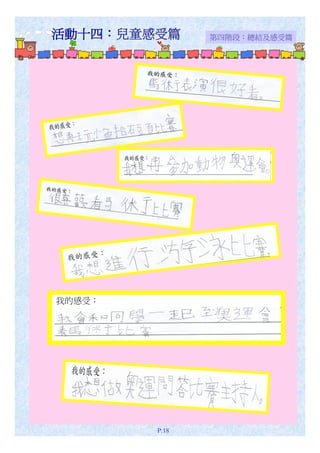 活動十四：兒童感受篇
第四階段：總結及感受篇
我的感受：
馬休表演很好看。
我的感受：
想去玩色拍百比賽
我的感受：
我想再參加動物奧運會。
我的感受：
很喜歡看馬休比賽
我的感受：
我想進行游泳比賽
我的感受：
我會和同學一起至奧運會
看馬休比賽
我的感受：
我想做奧運問答比賽主持人
P.18